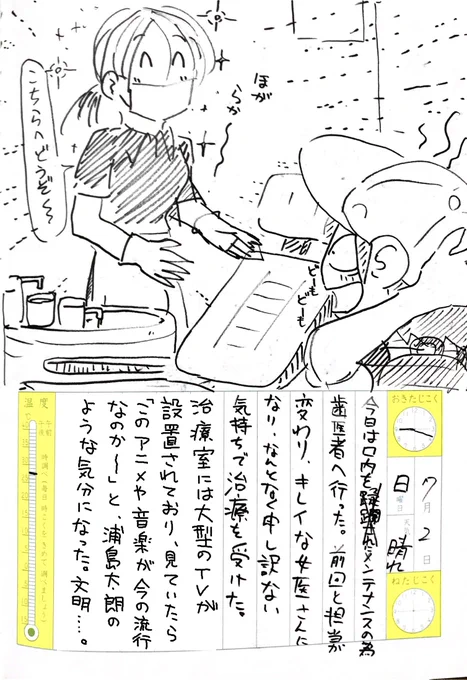 こちらへどうぞ〜
ほがらか
どーも
どーも
おきたじこく
7月2日
日曜日
天気 晴れ
ねたじこく
今日は口内をメンテナンスの為
歯医者へ行った。前回と担当が
変わり、キレイな女医さんに
なり、なんとなく申し訳ない
気持ちで治療を受けた。
治療室には大型のTVが
設置されており、見ていたら
「このアニメや音楽が今の流行
なのか〜」と、浦島太郎の
ような気分になった。文明…。
温度
午前
午後
時調べ(毎日時こくをきめて調べましょう)